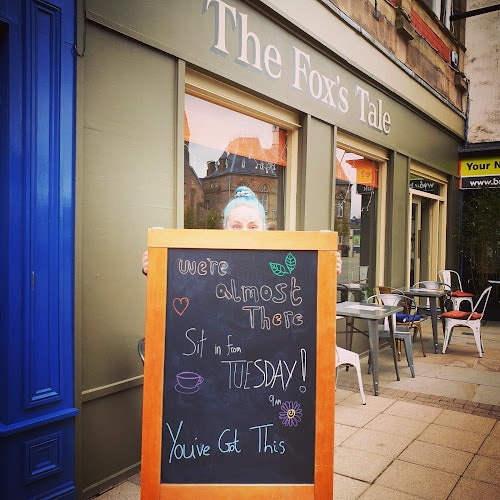 The Fox's Tale
Your N
www.b
we're
almost
There
Sit in from
TUESDAY!
9AM
You've Got This